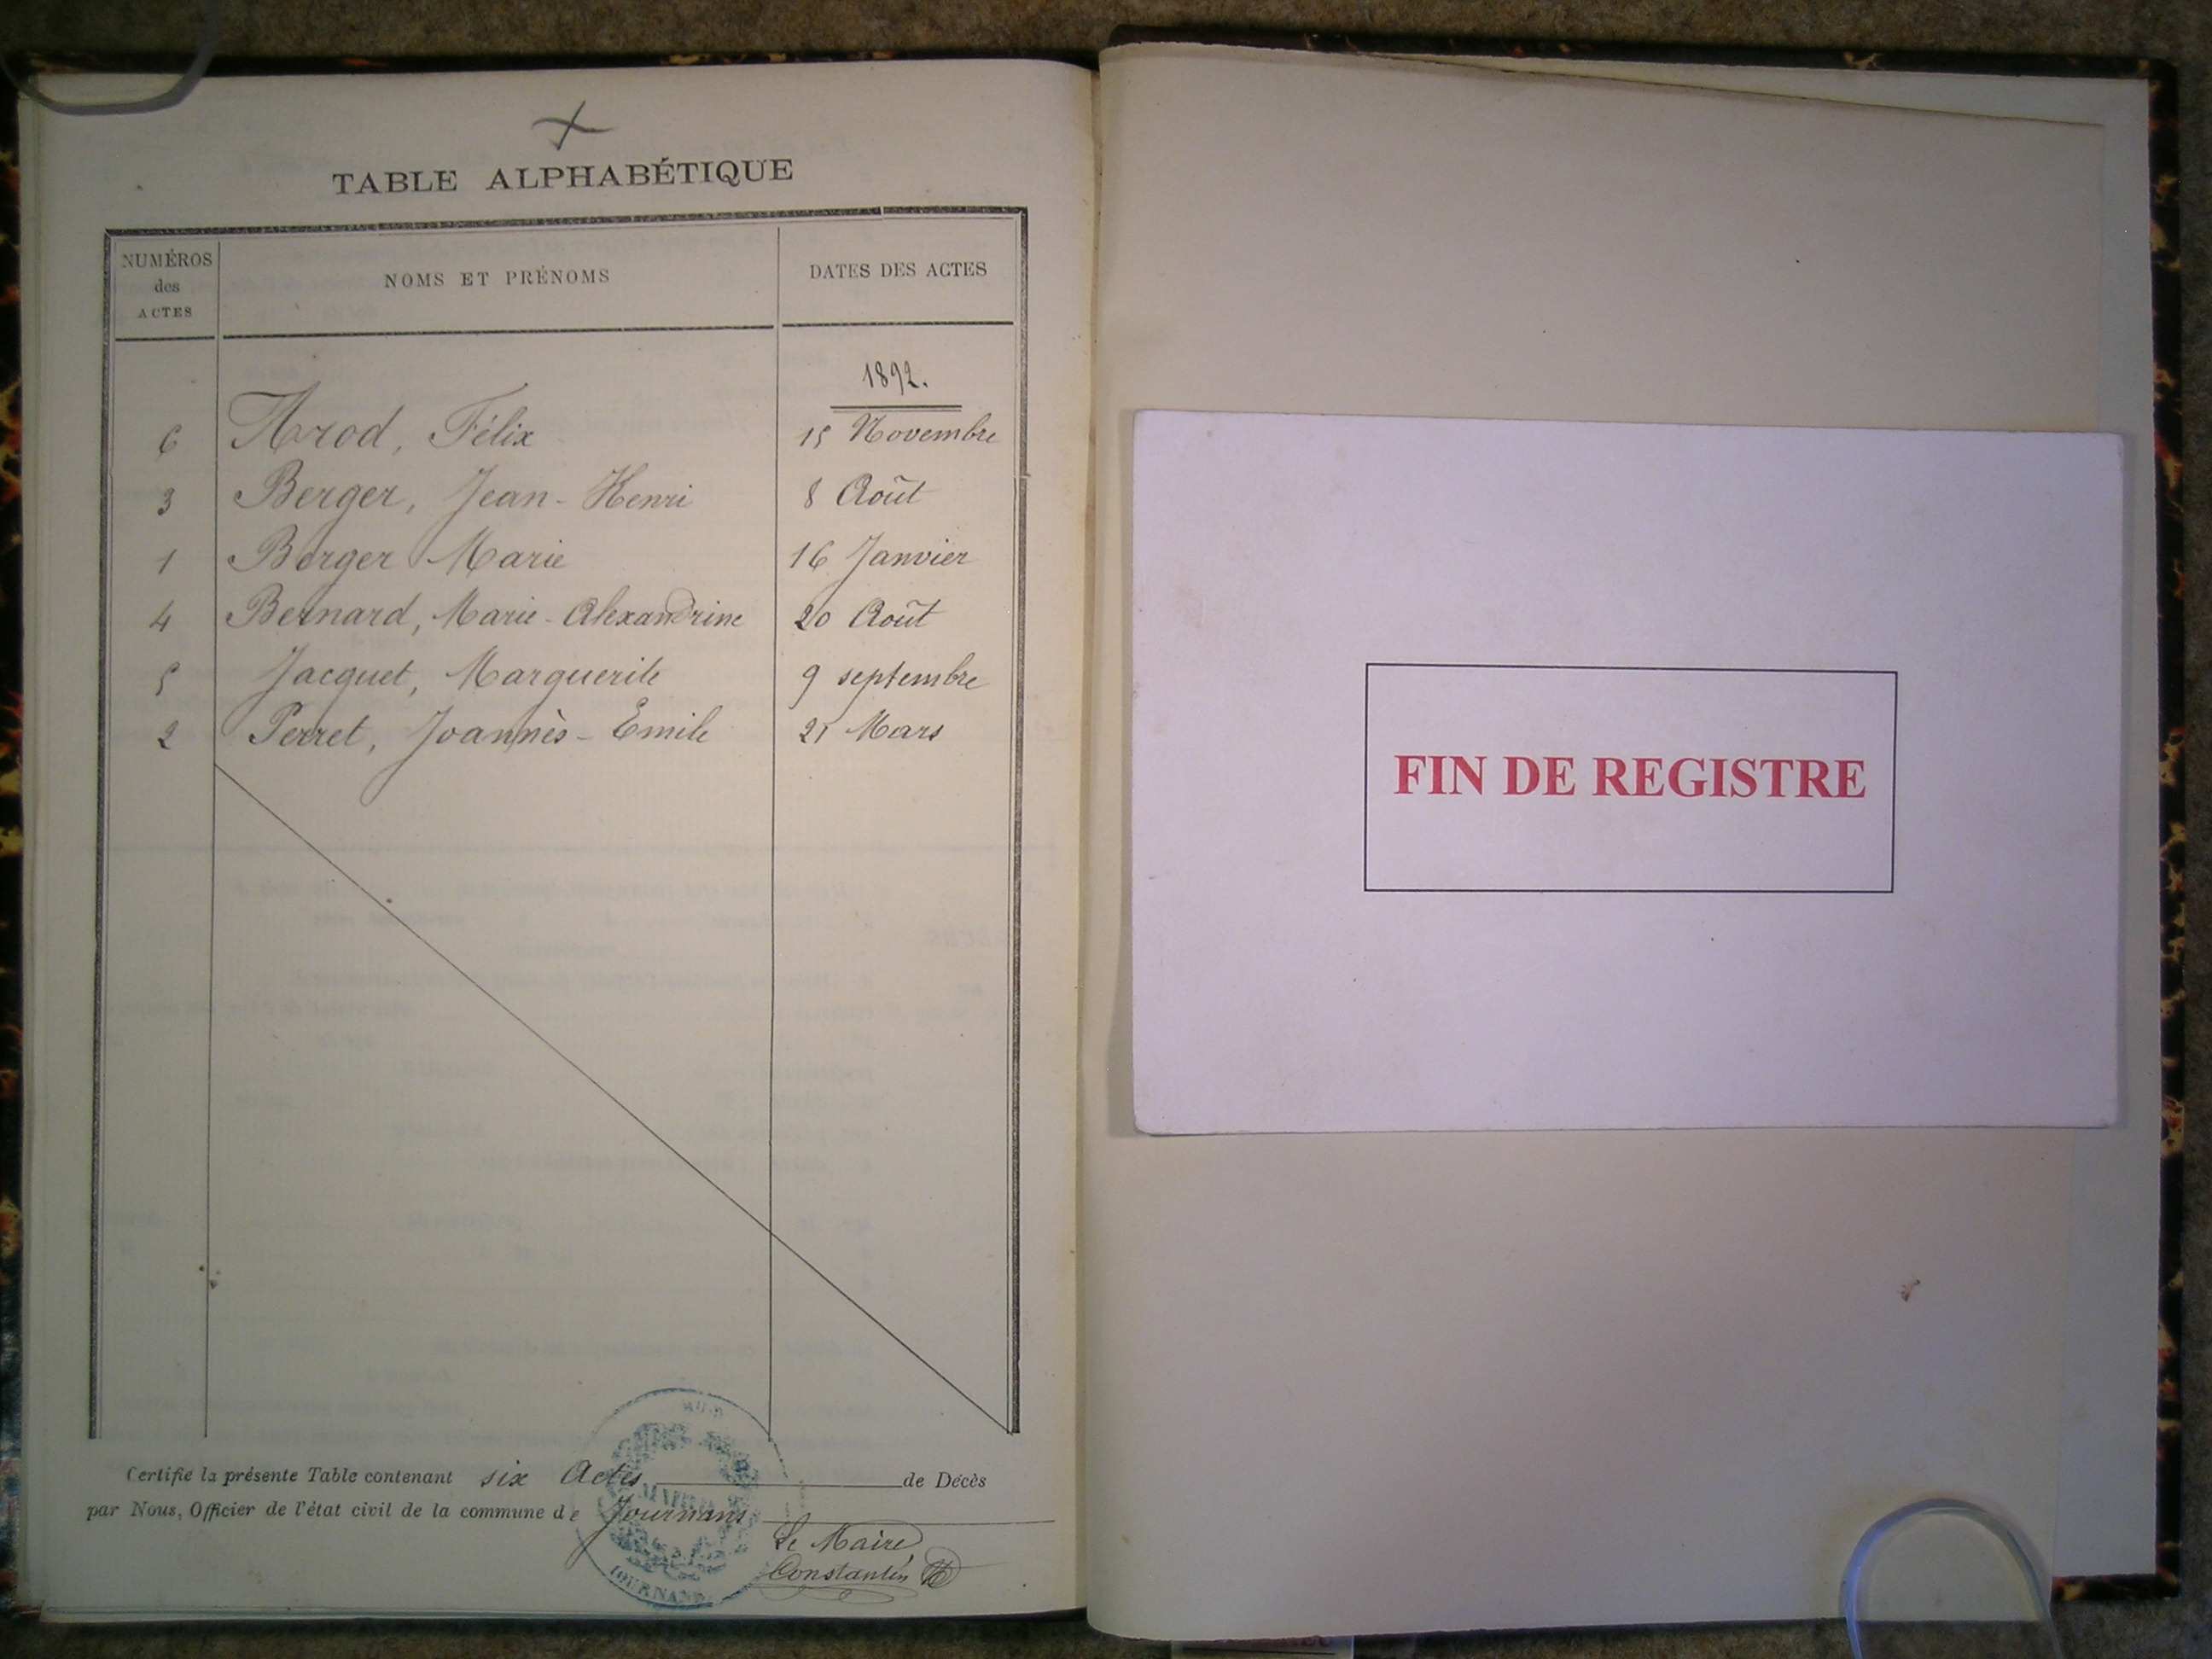 TABLE ALPHABÉTIQUE
NUMÉROS
des
ACTES
NOMS ET PRÉNOMS
DATES DES ACTES
1892.
6 Arod, Félix 15 Novembre
3 Berger, Jean-Henri 8 Août
1 Berger Marie 16 Janvier
4 Bernard, Marie-Alexandrine 20 Août
5 Jacquet, Marguerite 9 septembre
2 Perret, Joannès-Emile 21 Mars
Certifié la présente Table contenant six Actes de Décès
par Nous, Officier de l'état civil de la commune de Journans
Le Maire
Constantin
MAIRIE
JOURNANS
FIN DE REGISTRE